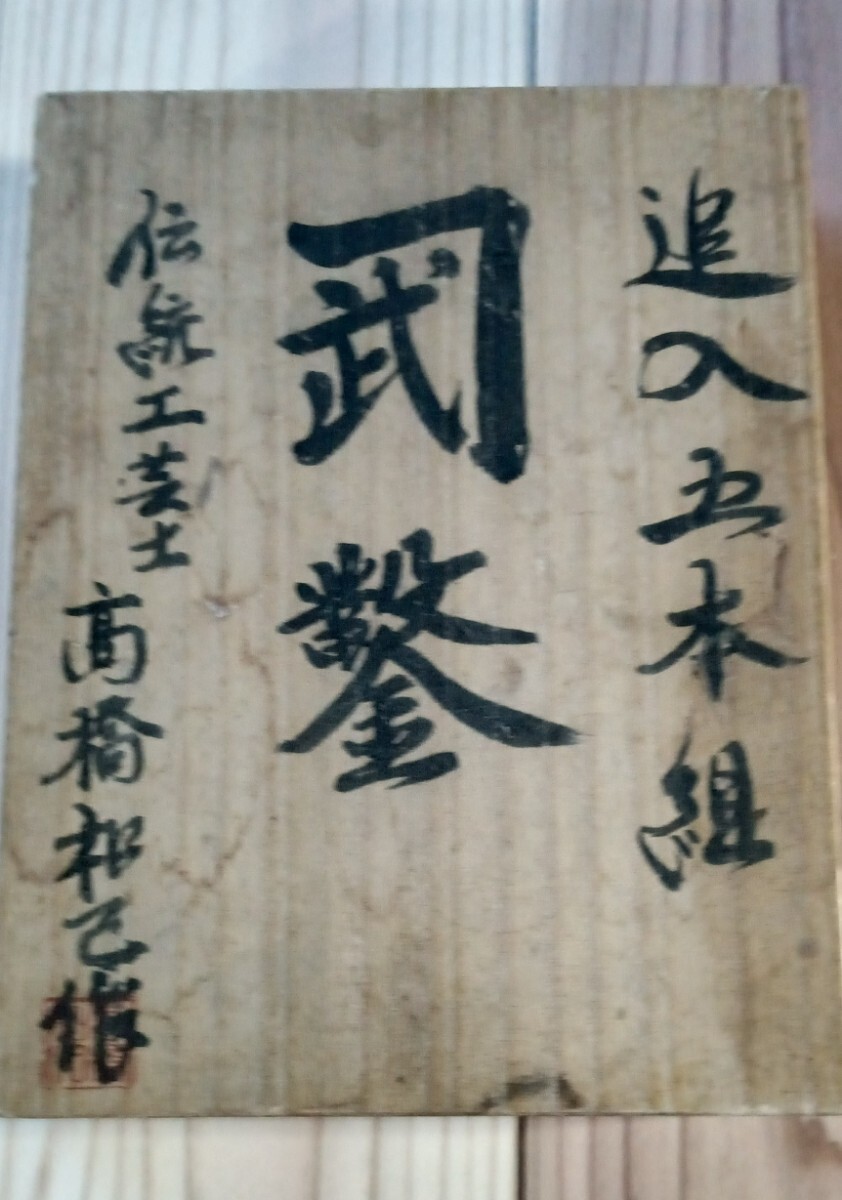 追入五本組
𠃍武鑿
伝統工芸士 高橋和巳作